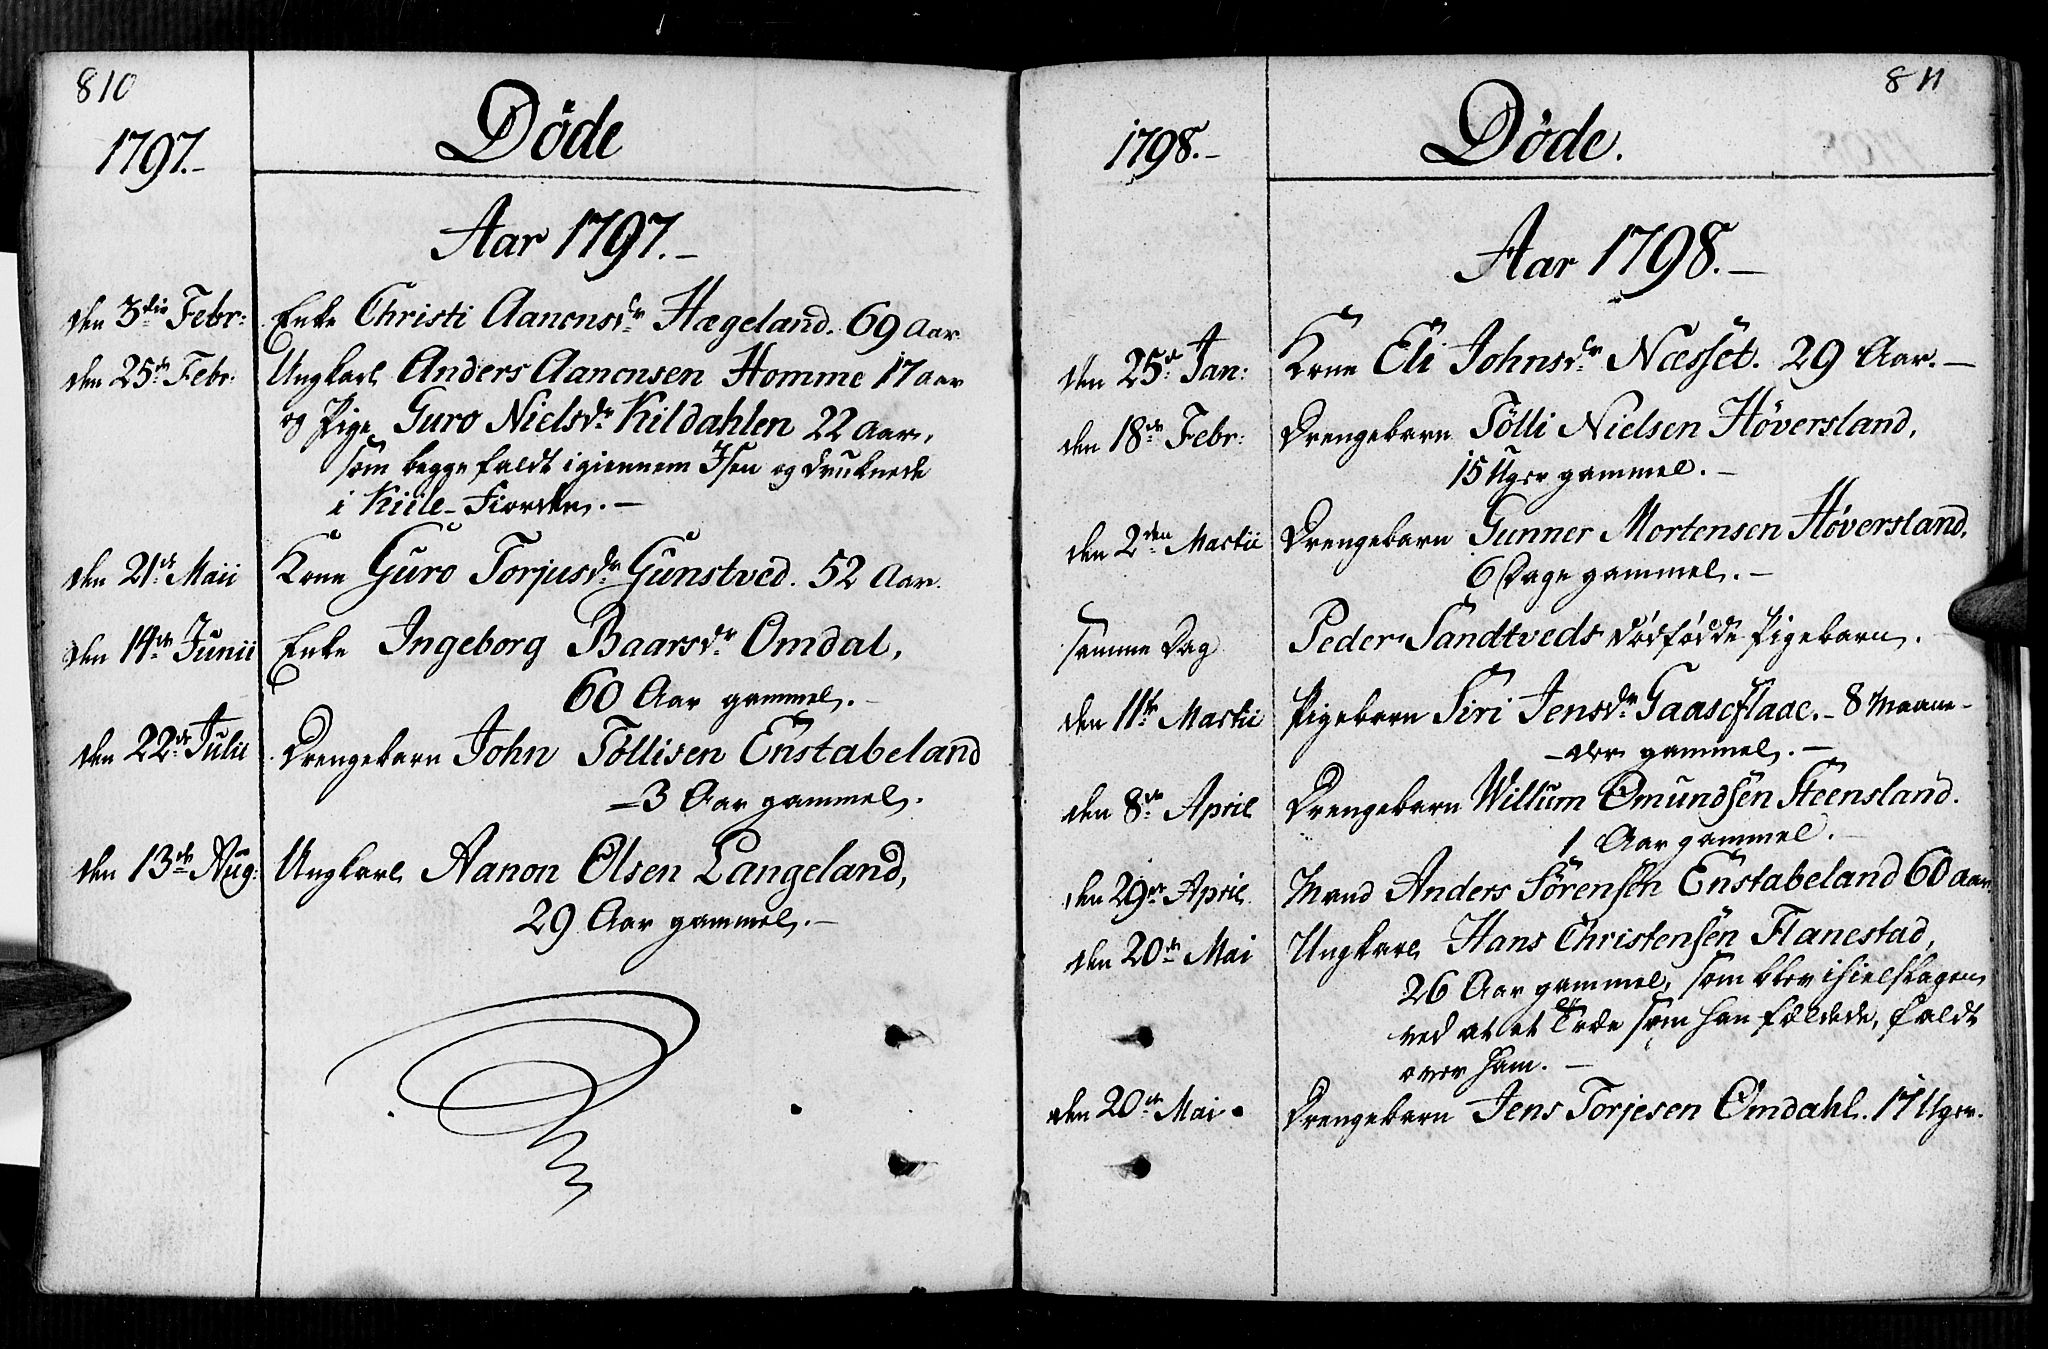 810
1797.-
Döde
Aar 1797.-
den 3die Febr: Enke Christi Aanonsdr Hægeland. 69 Aar
den 25de Febr: Ungkarl Anders Aanonsen Homme 17 aar
og Pige Guro Nielsdr Kildahlen 22 Aar,
som begge faldt igiennem Isen og druknede
i Kiile-Fiorden.-
den 21de Maii Kone Guro Torjusdr Gunstved. 52 Aar.
den 14de Junii Enke Ingeborg Baarsdr Omdal,
60 Aar gammel.-
den 22de Julii Drengebarn John Töllisen Enstabeland
-3 Aar gammel.
den 13de Aug: Ungkarl Aanon Olsen Langeland,
29 Aar gammel.-
811
1798.-
Döde.
Aar 1798.-
den 25de Jan: Kone Eli Johnsdr Næsset. 29 Aar.-
den 18de Febr: Drengebarn Tölli Nielsen Höversland,
15 Uger gammel.-
den 2den Martii Drengebarn Gunner Mortensen Höversland,
6 Dage gammel.-
samme Dag Peder Sandtveds dödfödde Pigebarn.
den 11te Martii Pigebarn Siri Jensdr Gaaseflaae.- 8 Maane-
-der gammel.-
den 8de April Drengebarn Willum Omundsen Steensland.
1 Aar gammel.-
den 29de April Mand Anders Sörensen Enstabeland 60 aar.
den 20de Mai Ungkarl Hans Christensen Flanestad,
26 Aar gammel, som blev ihielslagen
ved at et Træe som han fældede, faldt
over ham.-
den 20de Mai. Drengebarn Jens Torjesen Omdahl. 17 Uger.